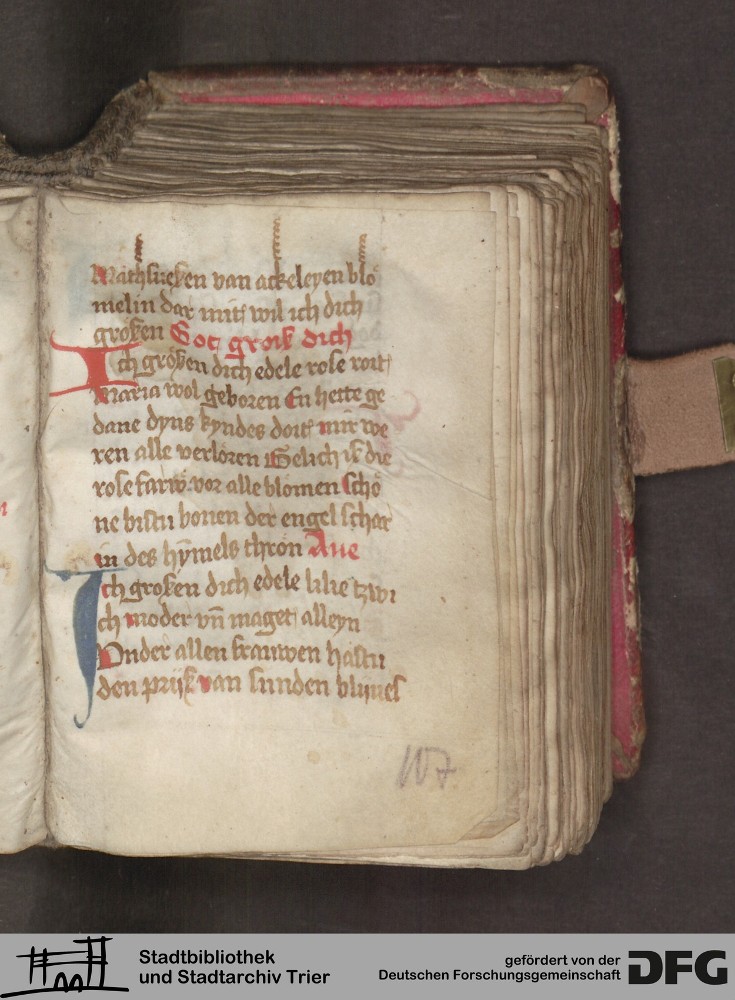 van ackeleyen blo
melin dar mit wil ich dich
großen Got groiß dich
Ich großen dich edele rose roit
Maria wol geboren En hette ge
dane dyns kyndes doit mir we
ren alle verloren Gelich is die
rose farw vor alle blomen scho
ne bistu bouen der engel schar
in des hymels thron Aue
Ich großen dich edele lilie tzwi
ch moder vn̄ maget alleyn
Onder allen frauwen hastu
den prijß van sunden blijues
107
Stadtbibliothek
und Stadtarchiv Trier
gefördert von der
Deutschen Forschungsgemeinschaft
DFG